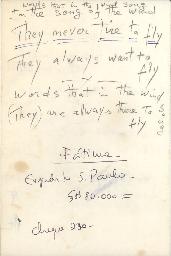 words that in the wind song
in the song of the wind
They never tire to fly
They always want to
fly
words that in the wind
(They) are always there to
fly
Song
Fátima
S. Paulo
80.000 =
230